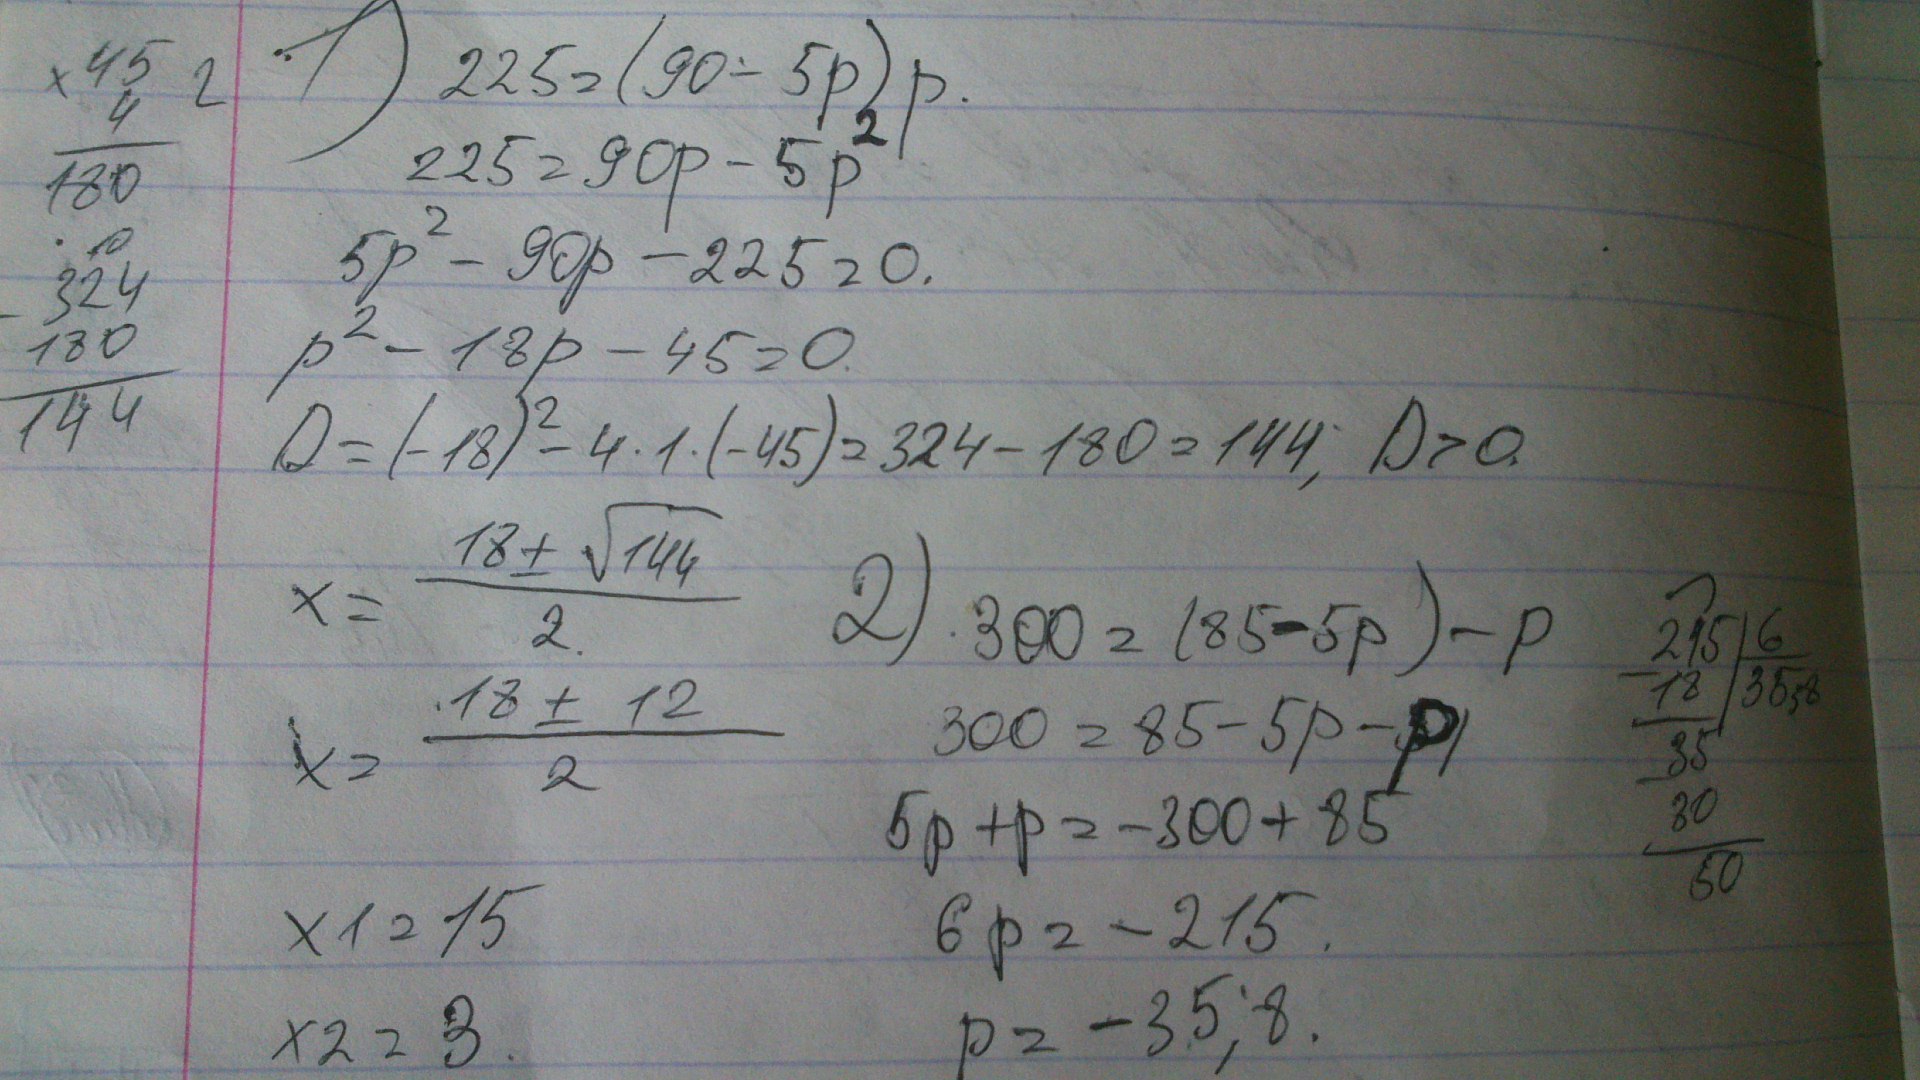 × 45 2
4
180
10
324
- 180
144
1) 225=(90-5p)p.
225=90p-5p²
5p²-90p-225=0.
p²-18p-45=0.
D=(-18)²-4·1·(-45)=324-180=144; D>0.
x= 18±√144 / 2.
x= 18±12 / 2
x1=15
x2=3.
2) 300=(85-5p)-p
300=85-5p-p
5p+p=-300+85
6p=-215.
p=-35,8.
- 215 | 6
18 | 35,8
- 35
30
50